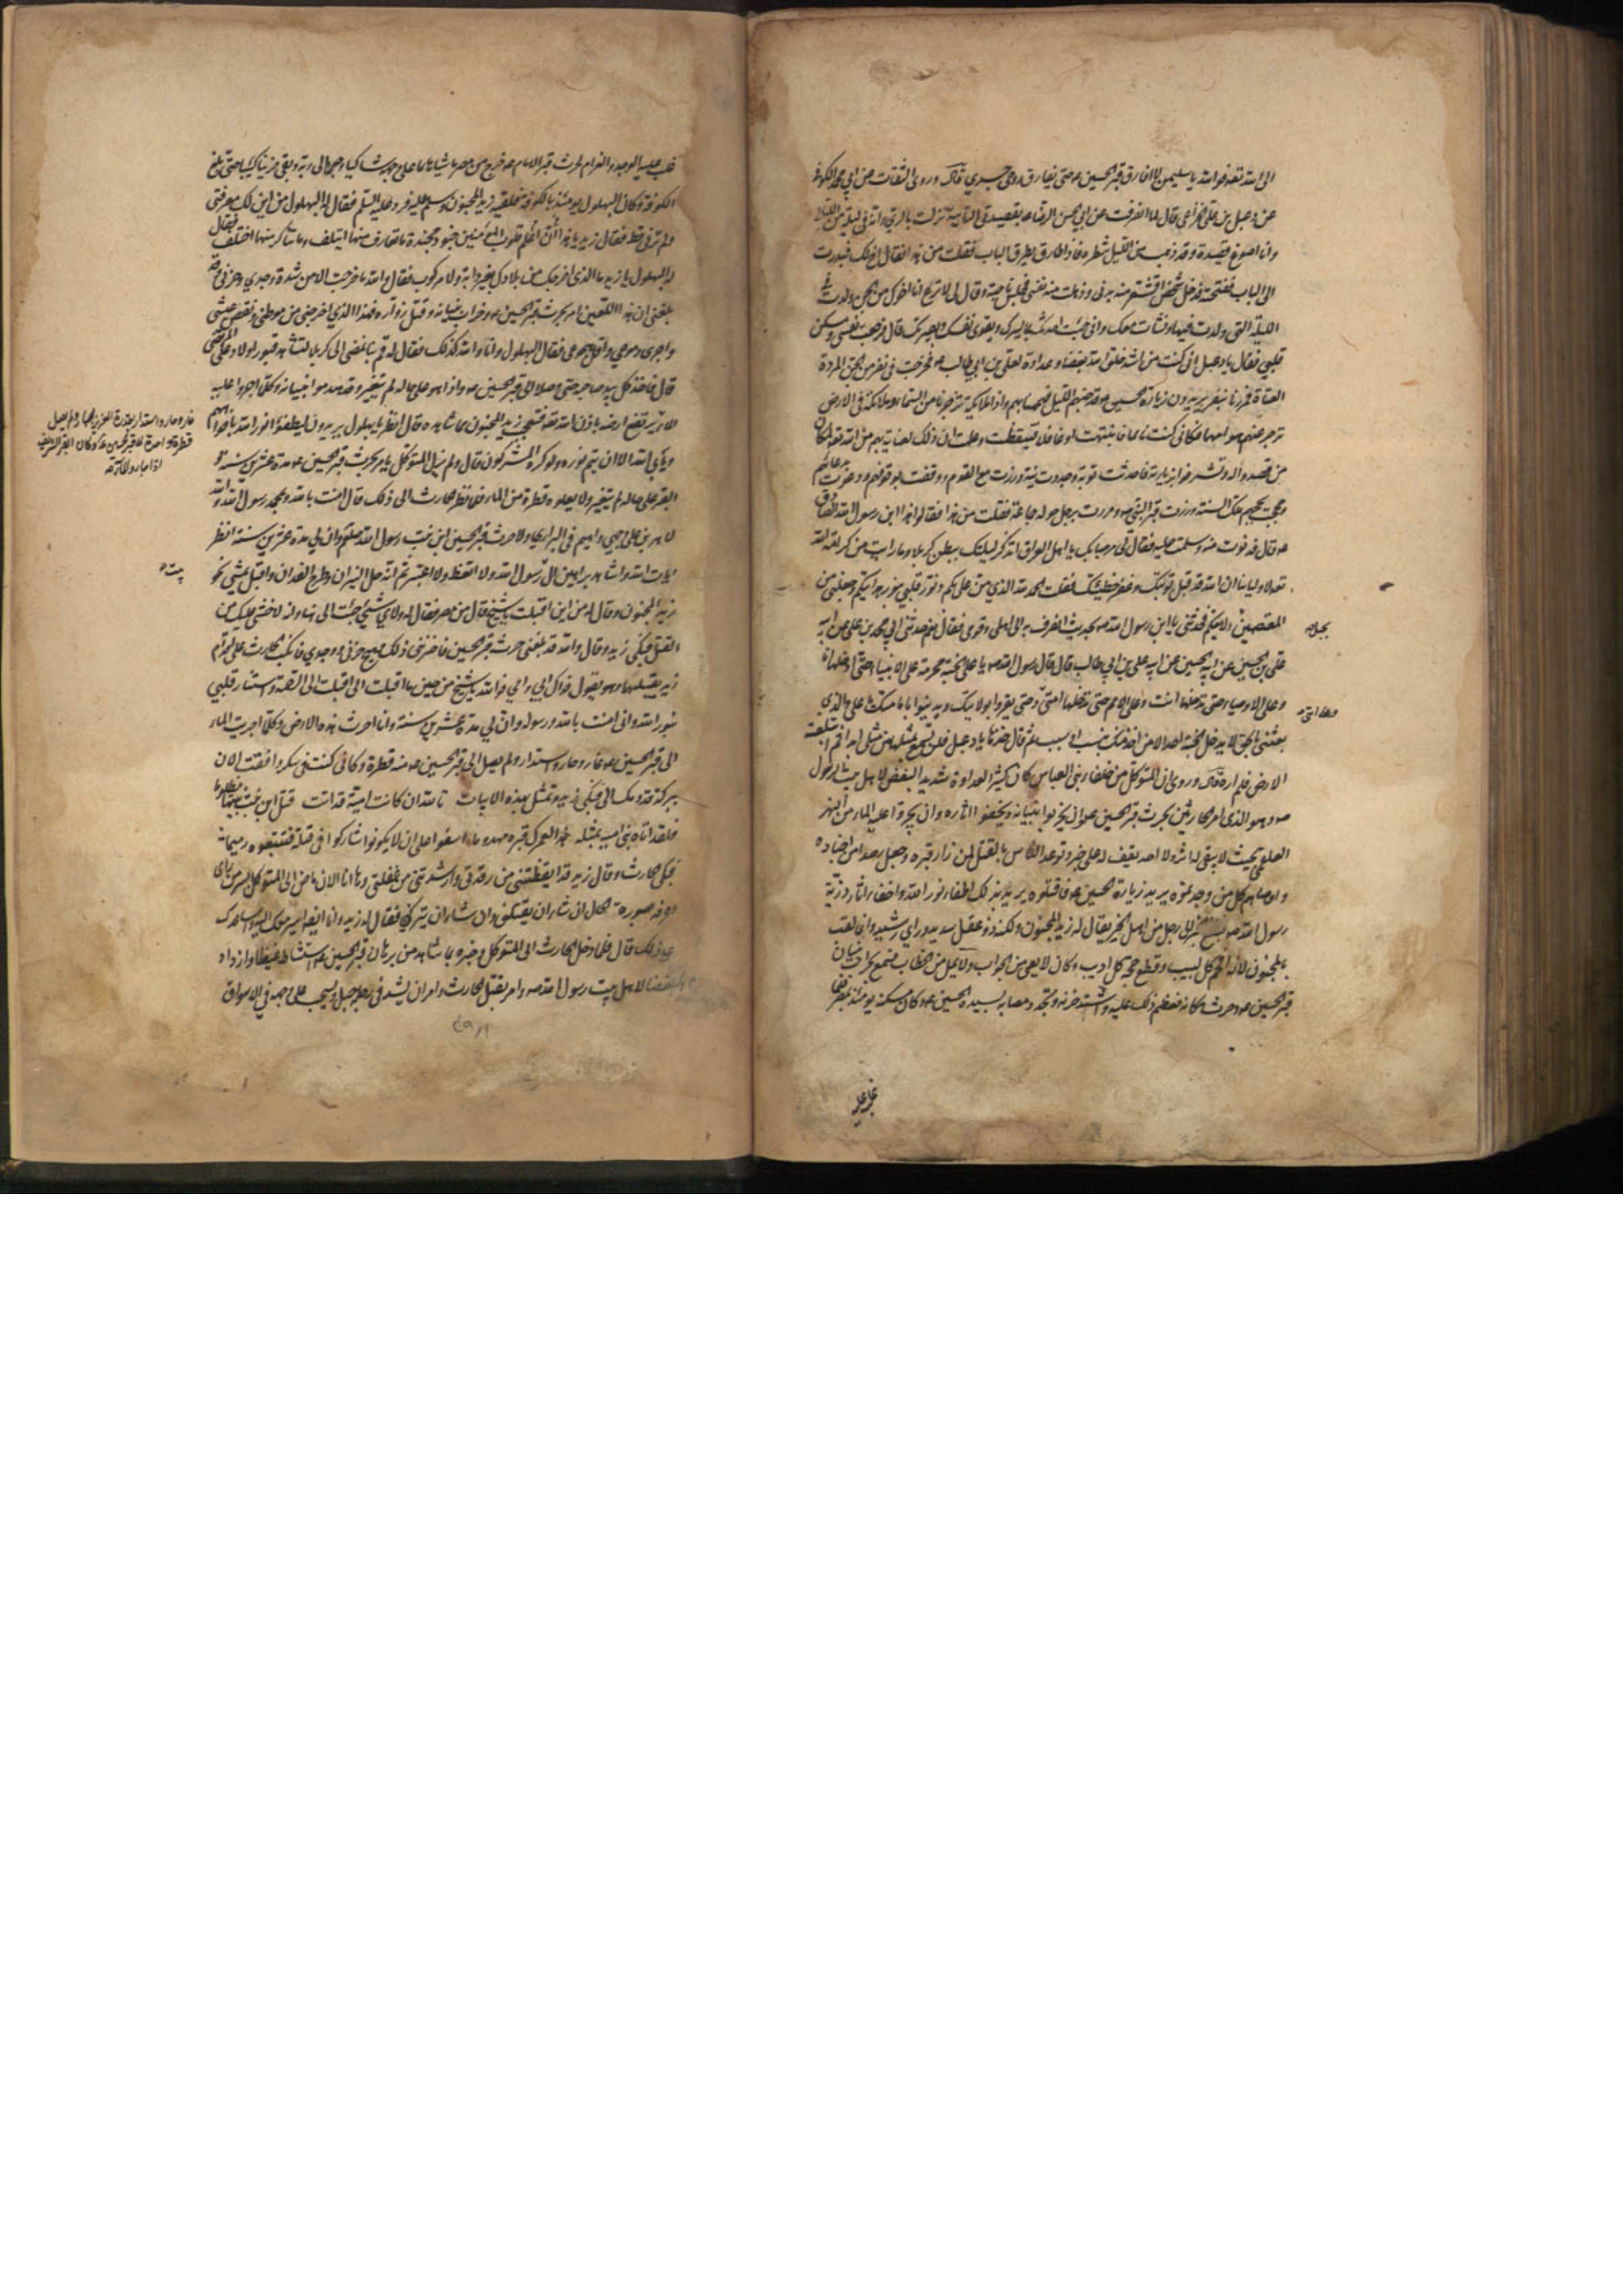 الى الله تعالى فوالله يا سليمن لا افارق قبر الحسين ع حتى يفارق روحى جسدي وروى الثقات عن ابي محمد الكوفي
عن دعبل بن على الخزاعى قال لما انصرفت عن ابي الحسن الرضا ع بقصيدتى التائية نزلت بالري وانه فى ليلة من الليالى
وانا اصوغ قصيدة وقد ذهب من الليل شطره فاذا طارق يطرق الباب فقلت من هذا فقال اخ لك فبدرت
الى الباب ففتحته فدخل شخص اقشعر منه بدنى وذهلت منه نفسى فجلس ناحية وقال لى لا ترع انا اخوك من الجن ولدت فى
الليلة التى ولدت فيها ونشأت معك وانى جئت احدثك بما يسرك ويقوى نفسك وبصيرتك قال فرجعت نفسى وسكن
قلبى فقال يا دعبل انى كنت من اشد خلق الله بغضا وعداوة لعلي بن ابي طالب ع فخرجت فى نفر من الجن المردة
العتاة فمررنا بنفر يريدون زيارة الحسين ع قد جنهم الليل فهممنا بهم واذا ملائكة تزجرنا من السماء وملائكة فى الارض
تزجر عنهم هوامها فكانى كنت نائما فانتبهت او غافلا فتيقظت وعلمت ان ذلك لعناية بهم من الله تعالى لمكان
من قصدوا له وتشرفوا بزيارته فاحدثت توبة وجددت نية وزرت مع القوم ووقفت بوقوفهم ودعوت بدعائهم
وحججت بحجهم تلك السنة وزرت قبر النبي ص ومررت برجل حوله جماعة فقلت من هذا فقالوا هذا ابن رسول الله الصادق
ع قال فدنوت منه وسلمت عليه فقال لى مرحبا بك يا اهل العراق اتذكر ليلتك ببطن كربلا وما رايت من كرامة الله
تعالى لاوليائنا ان الله قد قبل توبتك وغفر خطيئتك فقلت الحمد لله الذي من علي بكم ونور قلبي بنور هدايتكم وجعلنى من
المعتصمين بحبل ولايتكم فحدثنى يا ابن رسول الله ص بحديث انصرف به الى اهلى وقومى فقال نعم حدثنى ابي محمد بن على عن ابيه
على بن الحسين عن ابيه الحسين عن ابيه على بن ابي طالب قال قال رسول الله ص يا على الجنة محرمة على الانبياء حتى ادخلها انا
وعلى الاوصياء حتى تدخلها انت وعلى الامم حتى تدخلها امتى وحتى يقروا بولايتك ويدينوا بامامتك يا على والذي
بعثنى بالحق لا يدخل الجنة احد الا من اخذ منك بنسب او سبب ثم قال خذها يا دعبل فلن تسمع بمثلها من مثلى ابدا ثم ابتلعته
الارض فلم اره وروى ان المتوكل من خلفاء بنى العباس كان كثير العداوة شديد البغض لاهل بيت الرسول
ص وهو الذى امر الحارثين بحرث قبر الحسين ع وان يخربوا بنيانه ويخفوا اثاره وان يجروا عليه الماء من النهر
العلقمى بحيث لا يبقى له اثر ولا احد يقف له على خبر وتوعد الناس بالقتل لمن زار قبره وجعل رصدا من اجناده
واوصاهم كل من وجدتموه يريد زيارة الحسين ع فاقتلوه يريد بذلك اطفاء نور الله واخفاء اثار ذرية
رسول الله ص فبلغ الخبر الى رجل من اهل الخير يقال له زيد المجنون ولكنه ذو عقل سديد وراي رشيد وانما لقب
بالمجنون لانه افحم كل لبيب وقطع حجة كل اديب وكان لا يعى من الجواب ولا يمل من الخطاب فسمع بخراب بنيان
قبر الحسين ع وحرث مكانه فعظم ذلك عليه واشتد حزنه وتجدد مصابه بسيده الحسين ع وكان مسكنه يومئذ بمصر فلما
غلب عليه الوجد والغرام لحرث قبر الامام ع خرج من مصر ماشيا هائما على وجهه شاكيا وجده الى ربه وبقى حزينا كئيبا حتى بلغ
الكوفة وكان البهلول يومئذ بالكوفة فلقيه زيد المجنون وسلم عليه فرد عليه السلم فقال له البهلول من اين لك معرفتى
ولم ترنى قط فقال زيد يا هذا اعلم ان قلوب المؤمنين جنود مجندة ما تعارف منها ايتلف وما تناكر منها اختلف فقال
له البهلول يا زيد ما الذى اخرجك من بلادك بغير دابة ولا مركوب فقال والله ما خرجت الا من شدة وجدي وحزنى وقد
بلغنى ان هذا اللعين امر بحرث قبر الحسين ع وخراب بنيانه وقتل زواره فهذا الذي اخرجنى من موطنى ونغص عيشى
واجرى دموعى واقل هجوعى فقال البهلول وانا والله كذلك فقال له قم بنا نمضى الى كربلا لنشاهد قبور اولاد على المرتضى
قال فاخذ كل بيد صاحبه حتى وصلا الى قبر الحسين ع واذا هو على حاله لم يتغير وقد هدموا بنيانه وكلما اجروا عليه
الماء
ويأبى الله الا ان يتم نوره ولو كره المشركون قال ولم يزل المتوكل يامر بحرث قبر الحسين ع مدة عشرين سنة و
القبر على حاله لم يتغير ولا يعلوه قطرة من الماء فلما نظر الحارث الى ذلك قال امنت بالله وبمحمد رسول الله والله
لاهربن على وجهي واهيم فى البراري ولا احرث قبر الحسين ابن بنت رسول الله صلعم وان لي مدة عشرين سنة انظر
ايات الله واشاهد براهين ال رسول الله ولا اتعظ ولا اعتبر ثم انه حل النيران وطرح الفدان واقبل يمشى نحو
زيد المجنون وقال له من اين اقبلت يا شيخ قال من مصر فقال له ولاي شئ جئت الى هنا وانى لاخشى عليك من
القتل فبكى زيد وقال والله قد بلغنى حرث قبر الحسين فاحزننى ذلك وهيج حزنى ووجدي فانكب الحارث على اقدام
زيد يقبلهما وهو يقول فداك ابي وامي فوالله يا شيخ من حين ما اقبلت الى اقبلت الى الرحمة واستنار قلبى
بنور الله وانى امنت بالله ورسوله وان لي مدة عشرين سنة وانا احرث هذه الارض وكلما اجريت الماء
الى قبر الحسين ع غار وحار واستدار ولم يصل الى قبر الحسين ع منه قطرة وكانى كنت فى سكر وافقت الان
ببركة قدومك الى فبكى زيد وتمثل بهذه الابيات تالله ان كانت امية قد اتت قتل ابن بنت نبيها مظلوما
فلقد اتاه بنو ابيه بمثله هذا لعمرك قبره مهدوما اسفوا على ان لا يكونوا شاركوا فى قتله فتتبعوه رميما
فبكى الحارث وقال يا زيد قد ايقظتنى من رقدتى وارشدتنى من غفلتى وها انا الان ماض الى المتوكل بسر من راى
اعرفه صورة الحال ان شاء ان يقتلنى وان شاء ان يتركنى فقال له زيد وانا ايضا اسير معك اليه واساعدك
على ذلك قال فلما دخل الحارث الى المتوكل وخبره بما شاهد من برهان قبر الحسين ع استشاط غيظا وازداد
بغضا لاهل بيت رسول الله ص وامر بقتل الحارث وامر ان يشد فى رجله حبل ويسحب على وجهه فى الاسواق